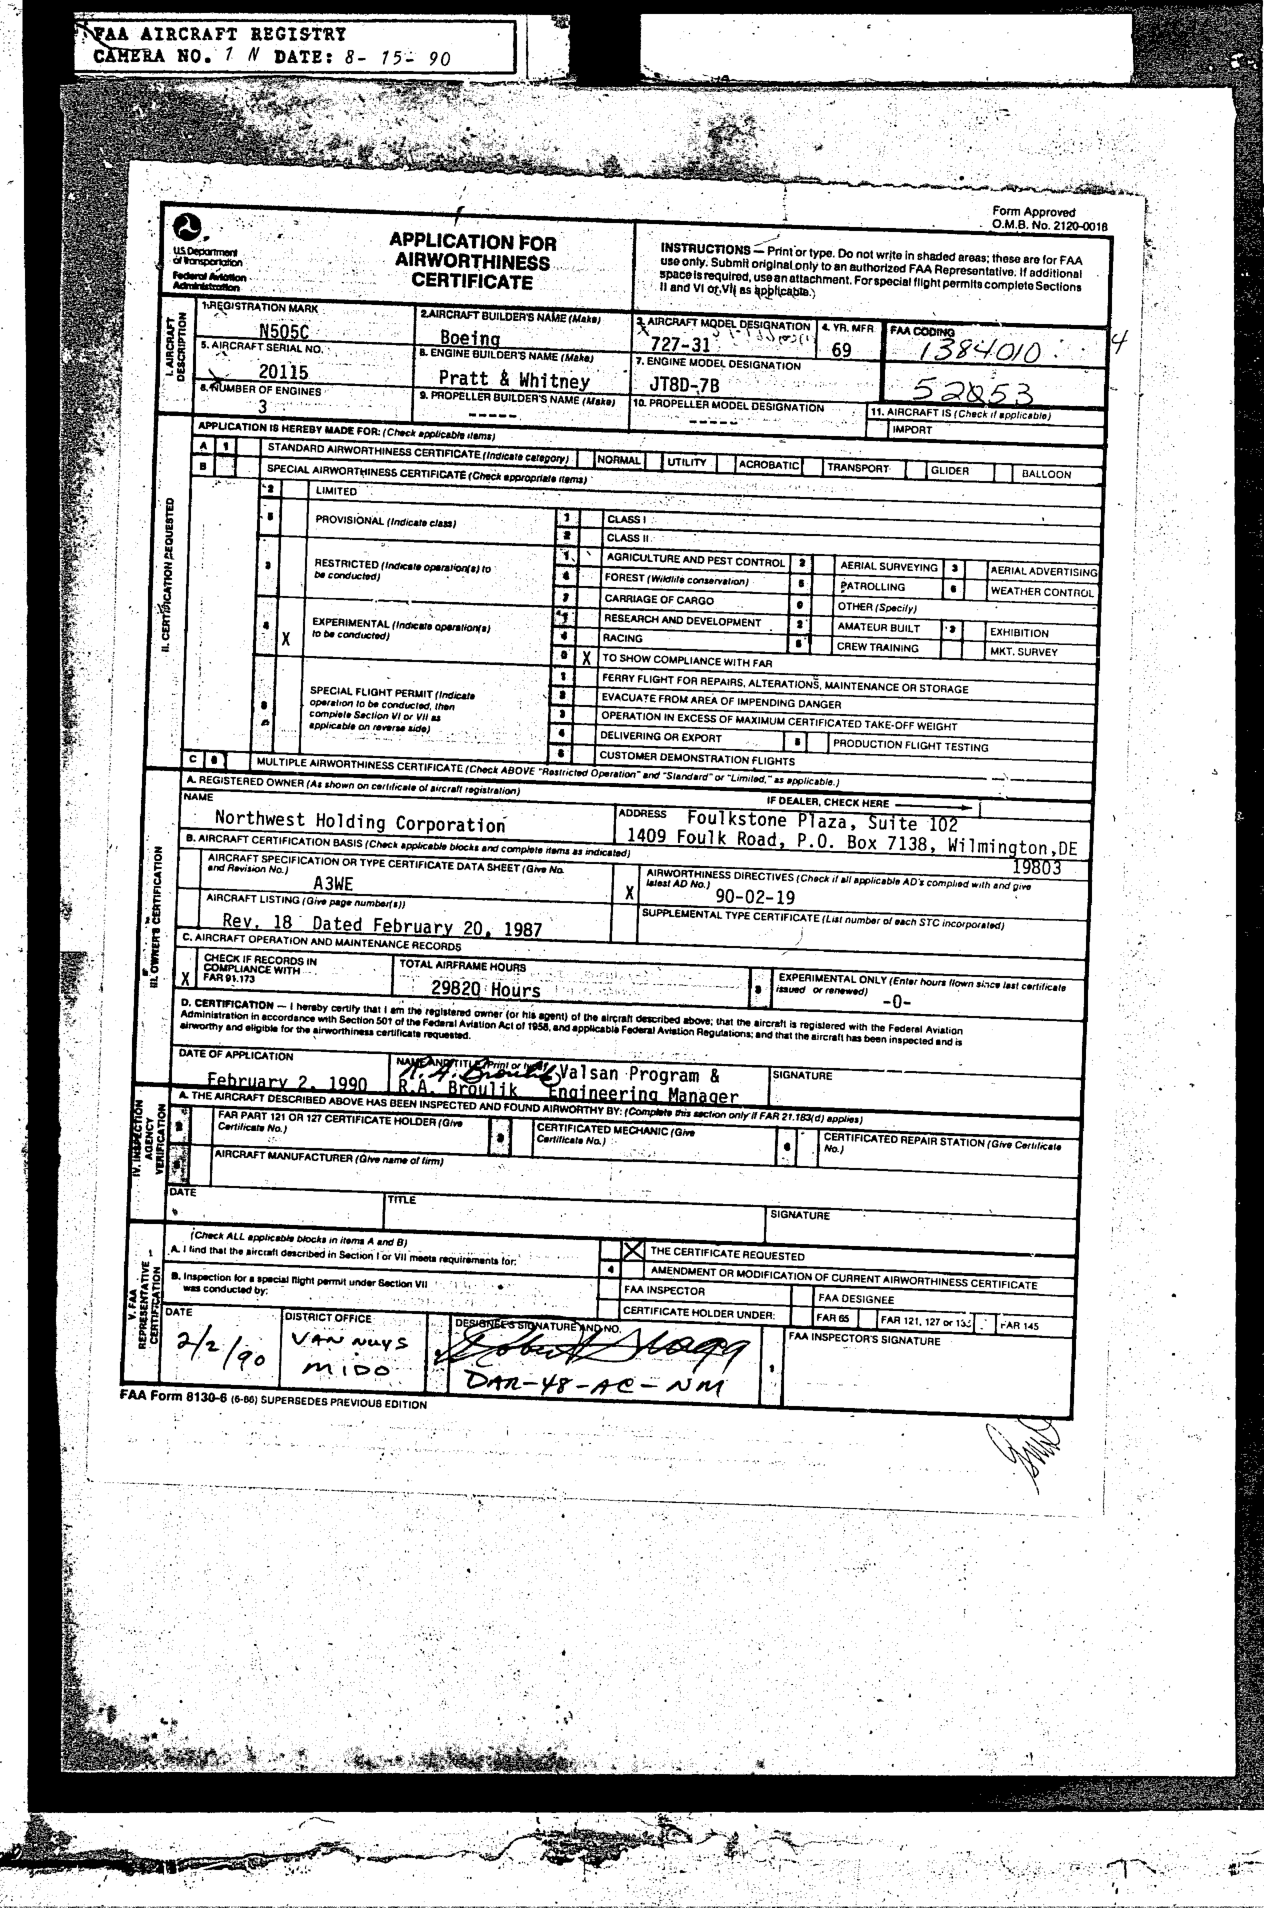 FAA AIRCRAFT REGISTRY
CAMERA NO. 1 N DATE: 8- 15- 90
Form Approved
O.M.B. No. 2120-0018
U.S. Department
of Transportation
Federal Aviation
Administration
APPLICATION FOR
AIRWORTHINESS
CERTIFICATE
INSTRUCTIONS — Print or type. Do not write in shaded areas; these are for FAA
use only. Submit original only to an authorized FAA Representative. If additional
space is required, use an attachment. For special flight permits complete Sections
II and VI or VII as applicable.
I. AIRCRAFT
DESCRIPTION
1. REGISTRATION MARK
N505C
2. AIRCRAFT BUILDER'S NAME (Make)
Boeing
3. AIRCRAFT MODEL DESIGNATION
727-31
4. YR. MFR.
69
FAA CODING
1384010
4
5. AIRCRAFT SERIAL NO.
20115
6. ENGINE BUILDER'S NAME (Make)
Pratt & Whitney
7. ENGINE MODEL DESIGNATION
JT8D-7B
52053
8. NUMBER OF ENGINES
3
9. PROPELLER BUILDER'S NAME (Make)
-----
10. PROPELLER MODEL DESIGNATION
-----
11. AIRCRAFT IS (Check if applicable)
IMPORT
II. CERTIFICATION REQUESTED
APPLICATION IS HEREBY MADE FOR: (Check applicable items)
A 1 STANDARD AIRWORTHINESS CERTIFICATE (Indicate category) NORMAL UTILITY ACROBATIC TRANSPORT GLIDER BALLOON
B SPECIAL AIRWORTHINESS CERTIFICATE (Check appropriate items)
2 LIMITED
5 PROVISIONAL (Indicate class)
1 CLASS I
2 CLASS II
3 RESTRICTED (Indicate operation(s) to
be conducted)
1 AGRICULTURE AND PEST CONTROL 2 AERIAL SURVEYING 3 AERIAL ADVERTISING
4 FOREST (Wildlife conservation) 5 PATROLLING 6 WEATHER CONTROL
7 CARRIAGE OF CARGO 0 OTHER (Specify)
4 X EXPERIMENTAL (Indicate operation(s)
to be conducted)
1 RESEARCH AND DEVELOPMENT 2 AMATEUR BUILT 3 EXHIBITION
4 RACING 5 CREW TRAINING MKT. SURVEY
0 X TO SHOW COMPLIANCE WITH FAR
8 SPECIAL FLIGHT PERMIT (Indicate
operation to be conducted, then
complete Section VI or VII as
applicable on reverse side)
1 FERRY FLIGHT FOR REPAIRS, ALTERATIONS, MAINTENANCE OR STORAGE
2 EVACUATE FROM AREA OF IMPENDING DANGER
3 OPERATION IN EXCESS OF MAXIMUM CERTIFICATED TAKE-OFF WEIGHT
4 DELIVERING OR EXPORT 5 PRODUCTION FLIGHT TESTING
6 CUSTOMER DEMONSTRATION FLIGHTS
C 6 MULTIPLE AIRWORTHINESS CERTIFICATE (Check ABOVE "Restricted Operation" and "Standard" or "Limited," as applicable.)
III. OWNER'S CERTIFICATION
A. REGISTERED OWNER (As shown on certificate of aircraft registration)
IF DEALER, CHECK HERE
NAME
Northwest Holding Corporation
ADDRESS Foulkstone Plaza, Suite 102
1409 Foulk Road, P.O. Box 7138, Wilmington,DE
19803
B. AIRCRAFT CERTIFICATION BASIS (Check applicable blocks and complete items as indicated)
AIRCRAFT SPECIFICATION OR TYPE CERTIFICATE DATA SHEET (Give No.
and Revision No.)
A3WE
X AIRWORTHINESS DIRECTIVES (Check if all applicable AD's complied with and give
latest AD No.)
90-02-19
AIRCRAFT LISTING (Give page number(s))
Rev. 18 Dated February 20, 1987
SUPPLEMENTAL TYPE CERTIFICATE (List number of each STC incorporated)
C. AIRCRAFT OPERATION AND MAINTENANCE RECORDS
X CHECK IF RECORDS IN
COMPLIANCE WITH
FAR 91.173
TOTAL AIRFRAME HOURS
29820 Hours
3 EXPERIMENTAL ONLY (Enter hours flown since last certificate
issued or renewed)
-0-
D. CERTIFICATION — I hereby certify that I am the registered owner (or his agent) of the aircraft described above; that the aircraft is registered with the Federal Aviation
Administration in accordance with Section 501 of the Federal Aviation Act of 1958, and applicable Federal Aviation Regulations; and that the aircraft has been inspected and is
airworthy and eligible for the airworthiness certificate requested.
DATE OF APPLICATION
February 2, 1990
NAME AND TITLE (Print or type)
R.A. Broulik
Valsan Program &
R.A. Broulik Engineering Manager
SIGNATURE
IV. INSPECTION
AGENCY
VERIFICATION
A. THE AIRCRAFT DESCRIBED ABOVE HAS BEEN INSPECTED AND FOUND AIRWORTHY BY: (Complete this section only if FAR 21.183(d) applies)
2 FAR PART 121 OR 127 CERTIFICATE HOLDER (Give
Certificate No.)
3 CERTIFICATED MECHANIC (Give
Certificate No.)
6 CERTIFICATED REPAIR STATION (Give Certificate
No.)
AIRCRAFT MANUFACTURER (Give name of firm)
DATE
TITLE
SIGNATURE
V. FAA
REPRESENTATIVE
CERTIFICATION
(Check ALL applicable blocks in items A and B)
A. I find that the aircraft described in Section I or VII meets requirements for:
X THE CERTIFICATE REQUESTED
4 AMENDMENT OR MODIFICATION OF CURRENT AIRWORTHINESS CERTIFICATE
B. Inspection for a special flight permit under Section VII
was conducted by:
FAA INSPECTOR FAA DESIGNEE
CERTIFICATE HOLDER UNDER: FAR 65 FAR 121, 127 or 135 FAR 145
DATE
2/2/90
DISTRICT OFFICE
VAN NUYS
MIDO
DESIGNEE'S SIGNATURE AND NO.
DAR-48-AC-NM
1
FAA INSPECTOR'S SIGNATURE
FAA Form 8130-6 (6-86) SUPERSEDES PREVIOUS EDITION